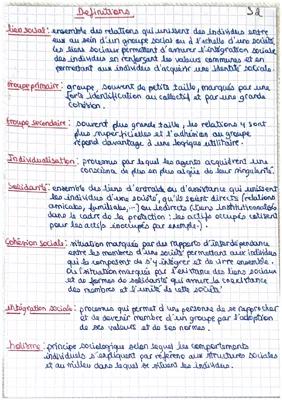 Définitions
Lien social : ensemble des relations qui unissent des individus entre
eux au sein d'un groupe social ou à l'échelle d'une société.
Les liens sociaux permettent d'assurer l'intégration sociale
des individus en renforçant les valeurs communes et en
permettant aux individus d'acquérir une identité sociale.
Groupe primaire : groupe, souvent de petite taille, marqués par une
forte identification au collectif et par une grande
cohésion.
Groupe secondaire : souvent plus grande taille, les relations y sont
plus superficielles et l'adhésion au groupe
répond davantage à une logique utilitaire.
Individualisation : processus par lequel les agents acquièrent une
conscience de plus en plus aigüe de leur singularité.
Solidarité : ensemble des liens d'entraide ou d'assistance qui unissent
les individus d'une société, qu'ils soient directs (relations
amicales, familiales,...) ou indirects (liens institutionnalisés
dans le cadre de la protection : les actifs occupés cotisent
pour les actifs inoccupés par exemple).
Cohésion sociale : situation marquée par des rapports d'interdépendance
entre les membres d'une société permettant aux individus
qui la composent de s'y intégrer et de vivre ensemble.
Ou situation marquée par l'existence des liens sociaux
et de formes de solidarité qui assure la coexistence
des membres et l'unité de cette société
Intégration sociale : processus qui permet à une personne de se rapprocher
et de devenir membre d'un groupe par l'adoption
de ses valeurs et de ses normes.
holisme : principe sociologique selon lequel les comportements
individuels s'expliquent par référence aux structures sociales
et au milieu dans lequel se situent les individus.